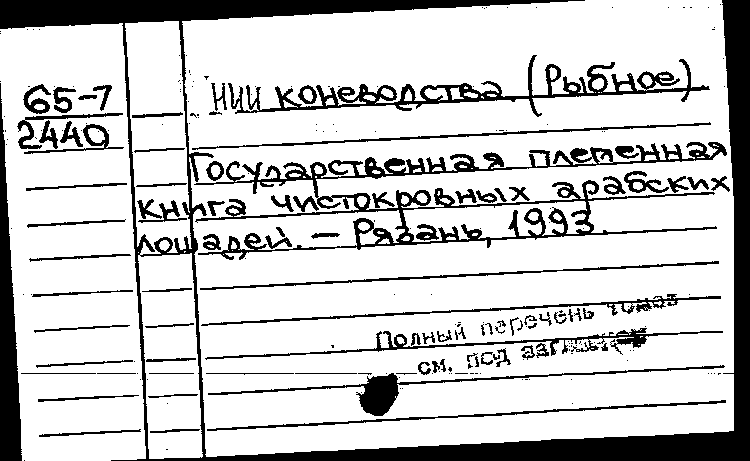 65-7
2440
НИИ коневодства. (Рыбное)
Государственная племенная
книга чистокровных арабских
лошадей. – Рязань, 1993.
Полный перечень томов
см. под